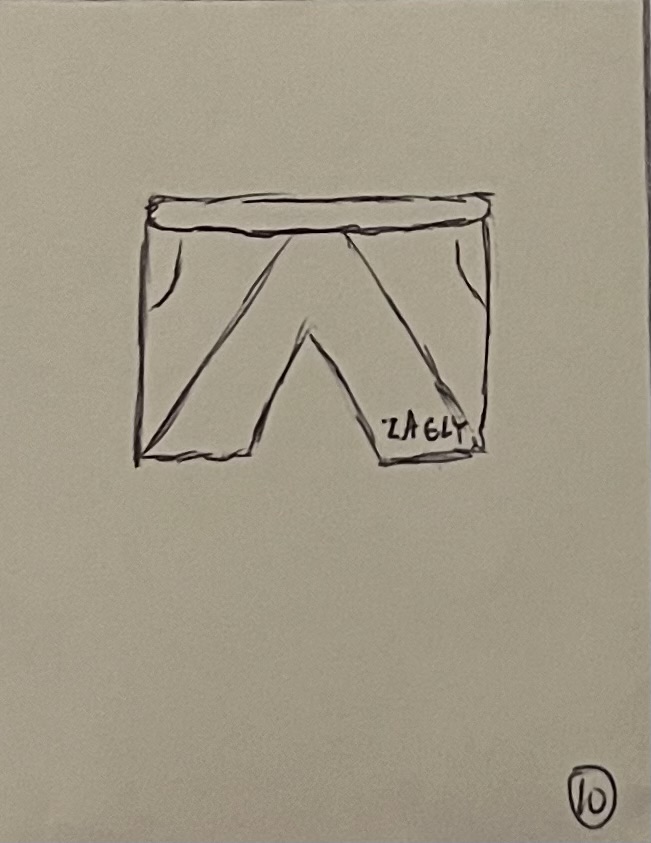 ZAGLY
10